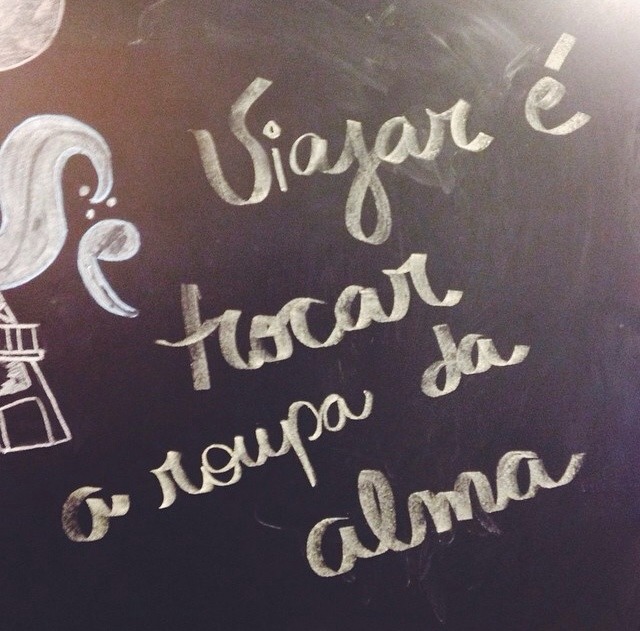 Viajar é
trocar
a roupa da
alma